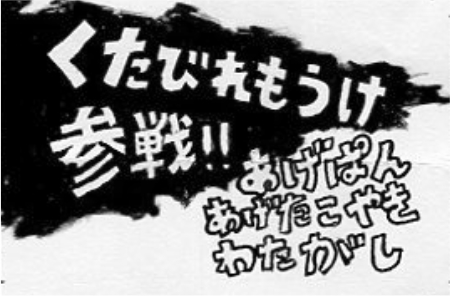 くたびれもうけ
参戦!!
あげぱん
あげたこやき
わたがし